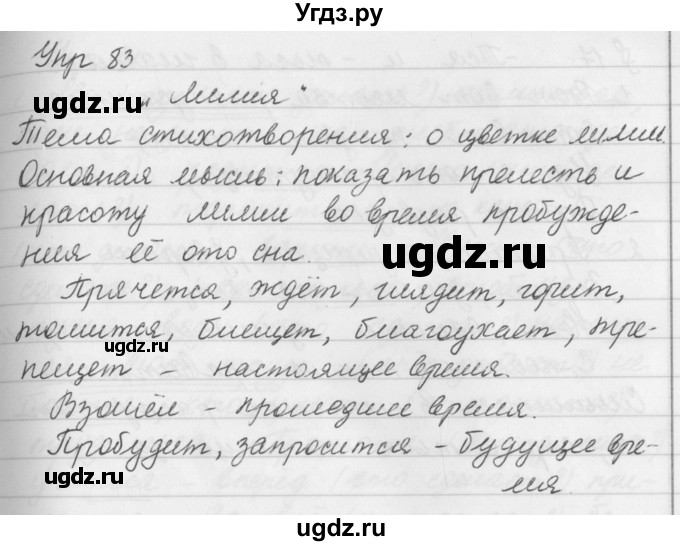 Угдз.ру
Упр 83
ugdz.ru
„Лилия"
Тема стихотворения: о цветке лилии.
Основная мысль: показать прелесть и
красоту лилии во время пробужде-
ния её ото сна.
ugdz.ru
Прячется, ждёт, глядит, горит,
томится, блещет, благоухает, тре-
ugdz.ru
пещет – настоящее время.
Взошёл – прошедшее время.
Пробудит, запросится – будущее вре-
ugdz.ru
мя.
ugdz.ru